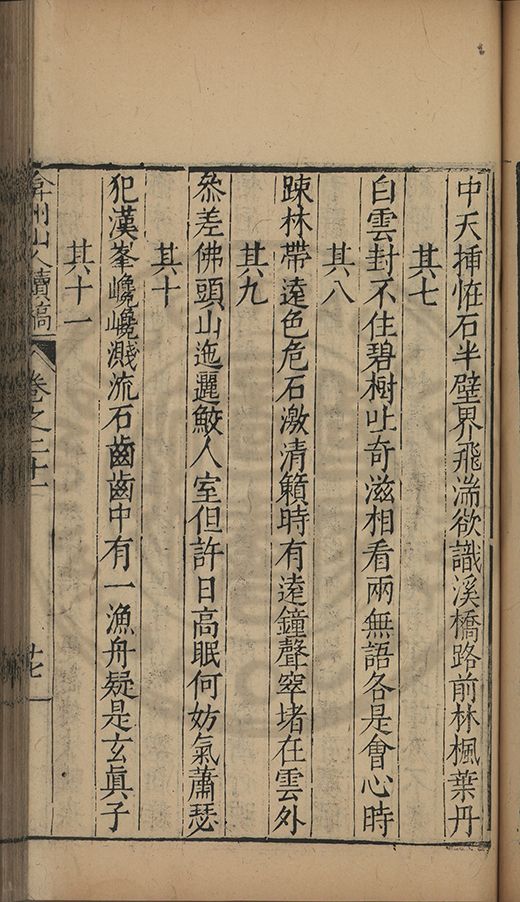 中天揷恠石半壁界飛湍欲識溪橋路前林楓葉丹
其七
白雲對不住碧樹吐奇滋相看兩無語各是會心時
其八
踈林帶遠色危石激清籟時有遠鐘聲窣堵在雲外
其九
叅差佛頭山迤邐鮫人室但許日高眠何妨氣蕭瑟
其十
犯漢峯巉巉濺流石齒齒中有一漁舟疑是玄眞子
其十一
弇州山人續稿 卷之二十一 廿七